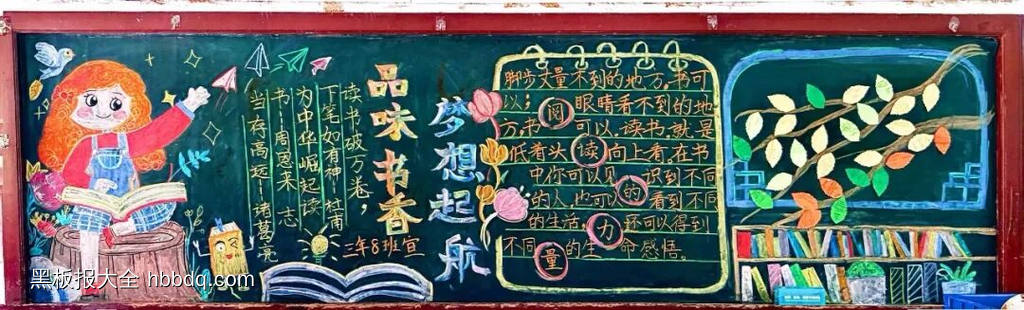 品味书香
梦想起航
三年8班宣
读书破万卷，
下笔如有神--杜甫
为中华崛起读
书--周恩来 志
当存高远--诸葛亮
脚步丈量不到的地方,书可
以；眼睛看不到的地
方,书可以,读书,就是
低着头向上看。在书
中你可以见识到不同
的人,也可看到不同
的生活,还可以得到
不同的生命感悟。
阅
读
的
力
量
黑板报大全 hbbdq.com